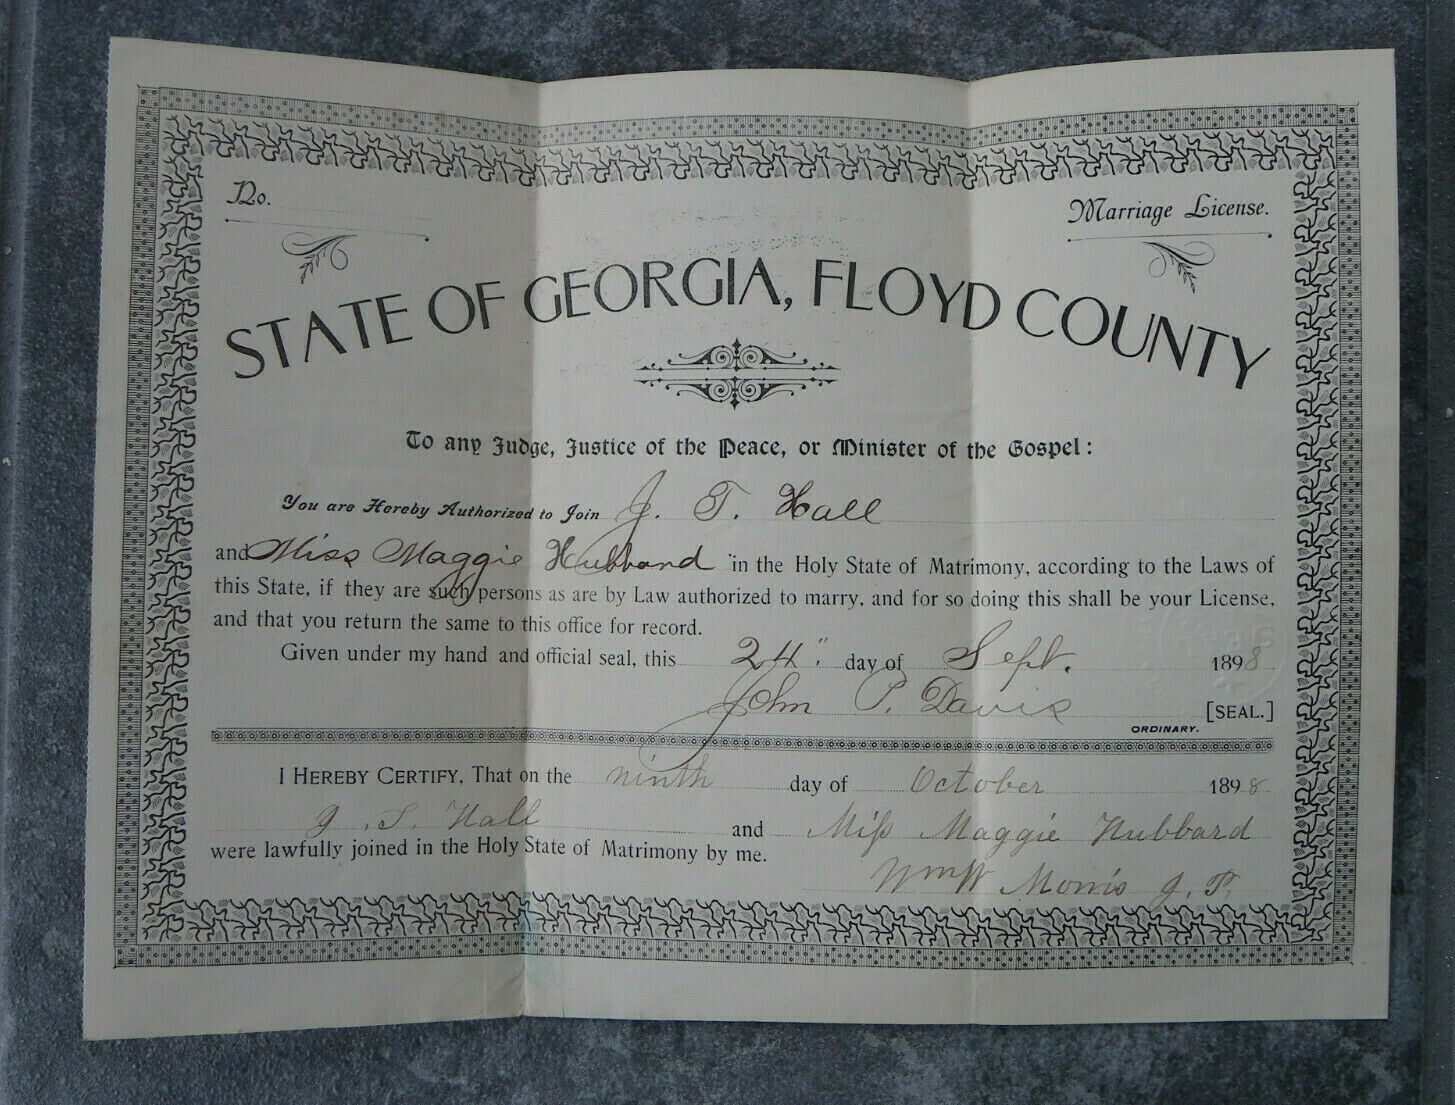 No.
Marriage License.
STATE OF GEORGIA, FLOYD COUNTY
To any Judge, Justice of the Peace, or Minister of the Gospel:
You are Hereby Authorized to Join J. T. Hall
and Miss Maggie Hubbard in the Holy State of Matrimony, according to the Laws of
this State, if they are such persons as are by Law authorized to marry, and for so doing this shall be your License,
and that you return the same to this office for record.
Given under my hand and official seal, this 24" day of Sept. 1898
John P. Davis [SEAL.]
ORDINARY.
I HEREBY CERTIFY, That on the ninth day of October 1898
J. T. Hall and Miss Maggie Hubbard
were lawfully joined in the Holy State of Matrimony by me.
Wm W Morris J. P.